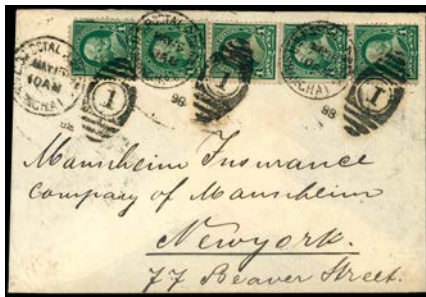 POSTAL
MAY 15
10 AM
98
1
98
1
98
Mannheim Insurance
Company of Mannheim
Newyork.
77 Beaver Street.